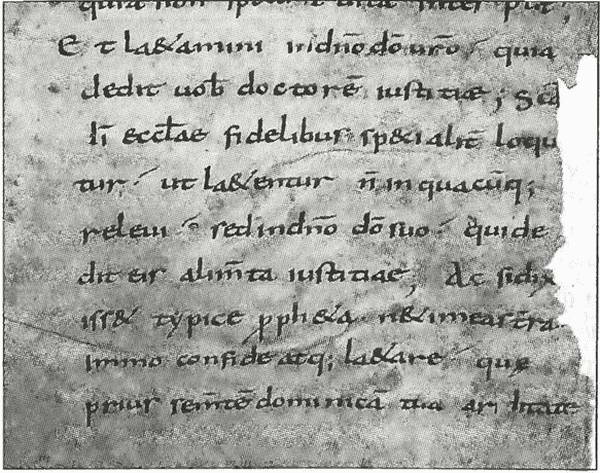 quia non inter
Et la&amini indn̄o dō urō quia
dedit uob̄ doctorē iustitiae; Scd̄
lī eccl̄ae fidelibus sp&ialit̄ loqu
tur ut la&entur n̄ inquacūq;
releui sed indn̄o dō suo quide
dit eis alim̄ta iustitiae; Ac sidix
iss& typice ꝓph&a n&imeas t̄ra
Immo confide atq; la&are quę
prius sem̄tē dominicā tua